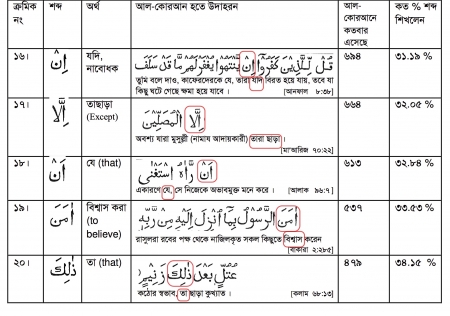 ক্রমিক নং	শব্দ	অর্থ	আল-কোরআন হতে উদাহরন	আল-কোরআনে কতবার এসেছে	কত % শব্দ শিখলেন
১৬।	اِنْ	যদি, নাবোধক	قُلْ لِّلَّذِيْنَ كَفَرُوْٓا اِنْ يَّنْتَهُوْا يُغْفَرْ لَهُمْ مَّا قَدْ سَلَفَ	৬৯৪	৩১.১৯ %
তুমি বলে দাও, কাফেরদেরকে যে, তারা যদি বিরত হয়ে যায়, তবে যা
কিছু ঘটে গেছে ক্ষমা হয়ে যাবে । [আনফাল ৮:৩৮]
১৭।	اِلَّا	তাছাড়া (Except)	اِلَّا الْمُصَلِّيْنَ	৬৬৪	৩২.০৫ %
অবশ্য যারা মুসুল্লী (নামায আদায়কারী) তারা ছাড়া ।
[মা'আরিজ ৭০:২২]
১৮।	اَنْ	যে (that)	اَنْ رَّاٰهُ اسْتَغْنٰى	৬১৩	৩২.৮৪ %
একারণে যে, সে নিজেকে অভাবমুক্ত মনে করে । [আলাক ৯৬:৭]
১৯।	اٰمَنَ	বিশ্বাস করা (to believe)	اٰمَنَ الرَّسُوْلُ بِمَآ اُنْزِلَ اِلَيْهِ مِنْ رَّبِّهٖ	৫৩৭	৩৩.৫৩ %
রাসুলরা রবের পক্ষ থেকে নাজিলকৃত সকল কিছুতে বিশ্বাস করেন
[বাকারা ২:২৮৫]
২০।	ذٰلِكَ	তা (that)	عُتُلٍّۢ بَعْدَ ذٰلِكَ زَنِيْمٍ	৪৭৯	৩৪.১৫ %
কঠোর স্বভাব, তা ছাড়া কুখ্যাত । [কলাম ৬৮:১৩]